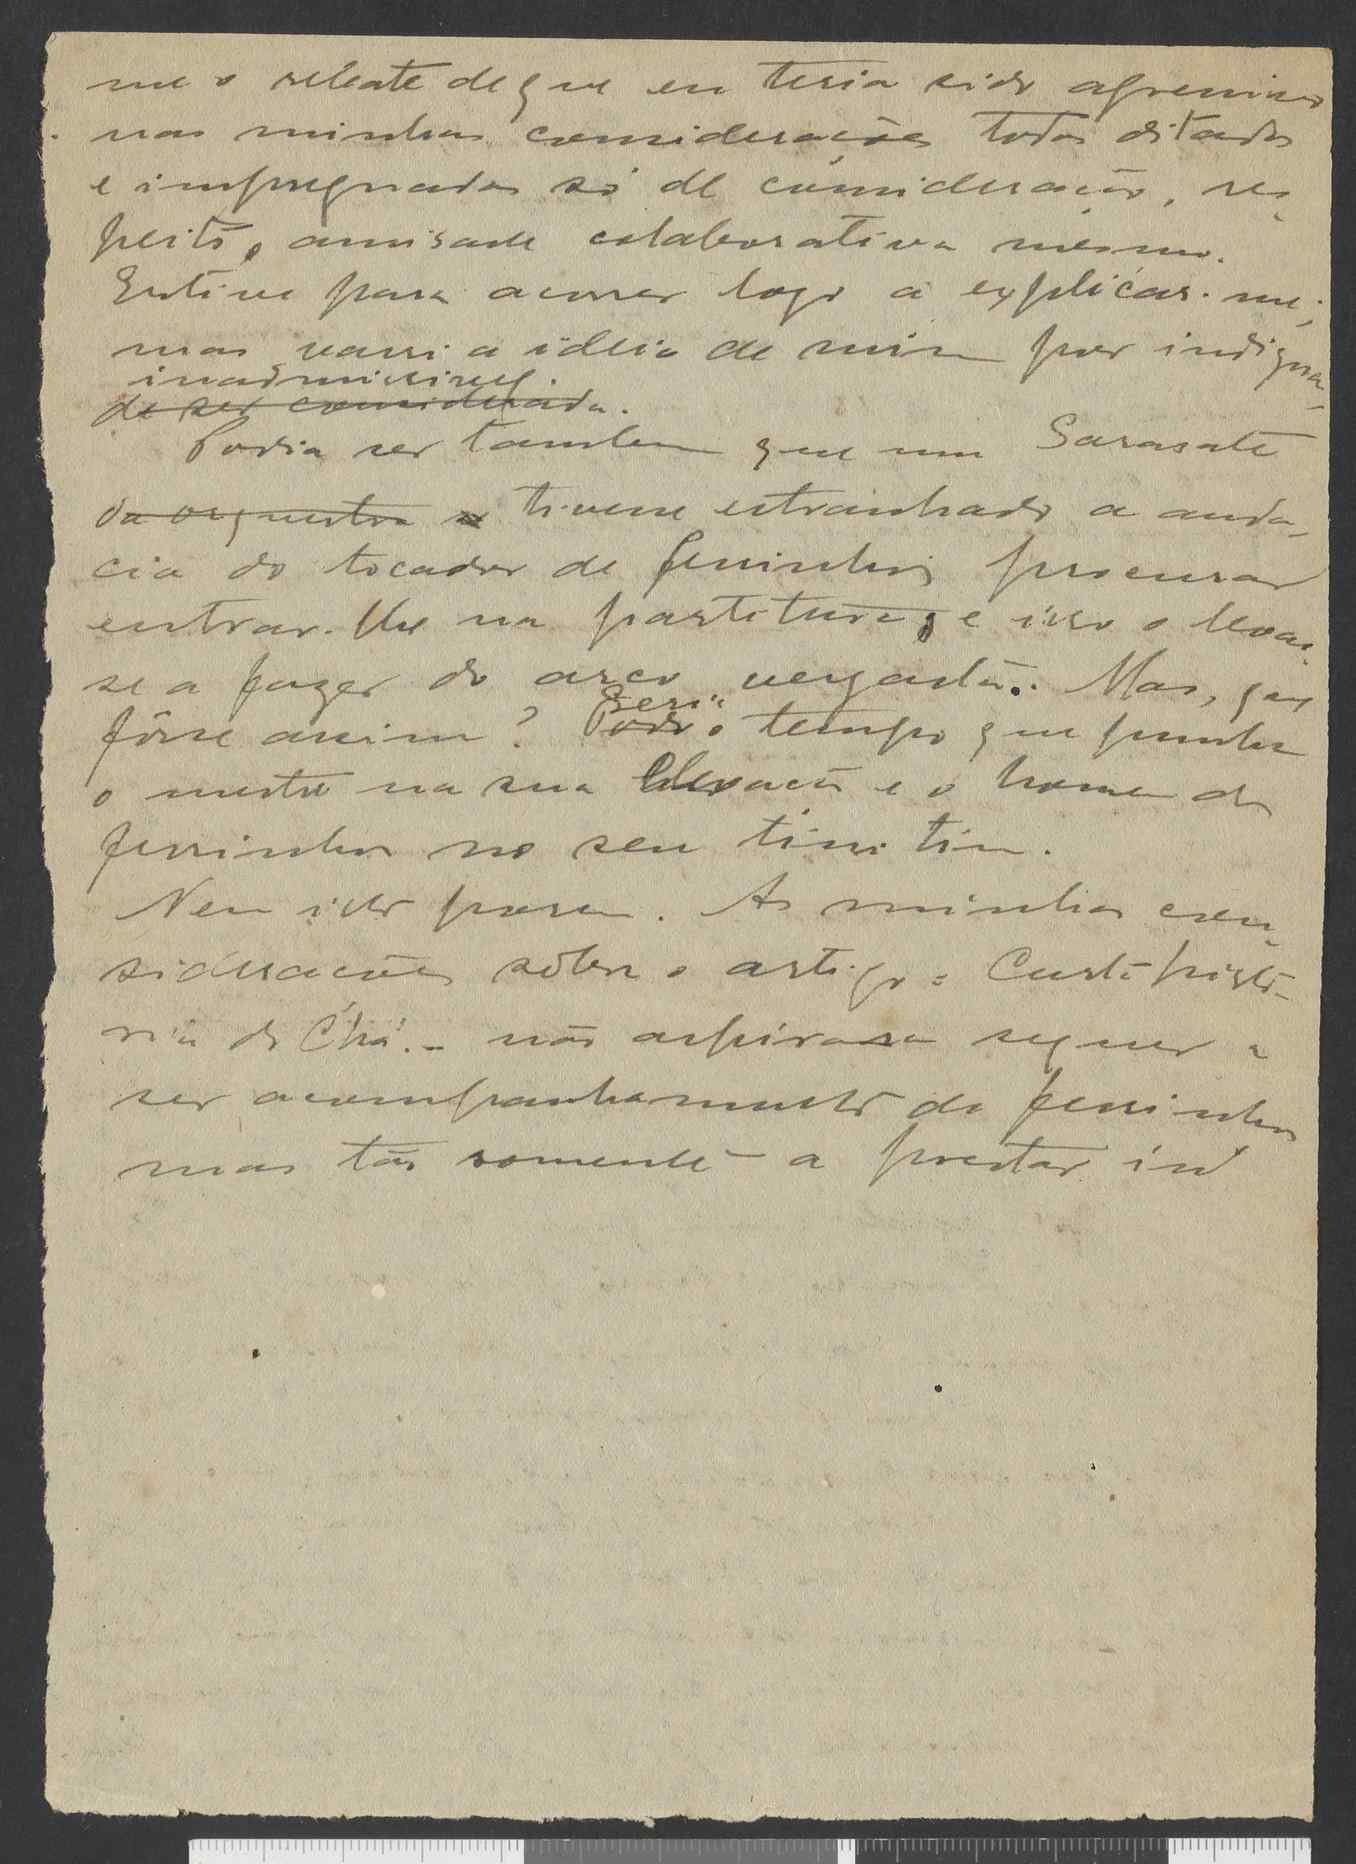 me o rebate de que eu teria sido
nas minhas considerações todas ditadas
e impregnadas só de consideração, res-
peito, amisade colaborativa mesmo.
Estive para acorrer logo a explicar-me;
mas varri a ideia de mim por indigna,
inadmissivel.
de ser considerada.
Podia ser tambem que um Sarasate
da orquestra tivesse estranhado a auda-
cia do tocador de ferrinhos procurar
entrar-lhe na partitura, e isso o levas-
se a fazer do arco vergasta. Mas, que
fôsse assim? Seria
o tempo que punha
o mestre na sua elevação e o homem dos
ferrinhos no seu tim tim.
Nem isto porem. As minhas con-
siderações sôbre o artigo: Curta histó-
ria do Chá - não aspiravam sequer a
ser acompanhamento de ferrinhos
mas tão somente a prestar